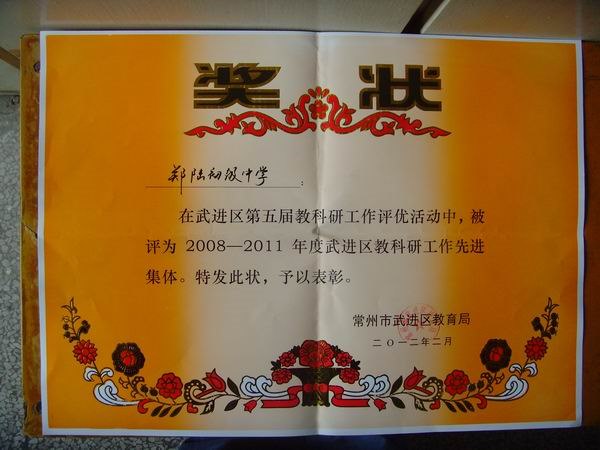 奖状
郑陆初级中学：
在武进区第五届教科研工作评优活动中，被
评为 2008—2011 年度武进区教科研工作先进
集体。特发此状，予以表彰。
常州市武进区教育局
二〇一二年二月